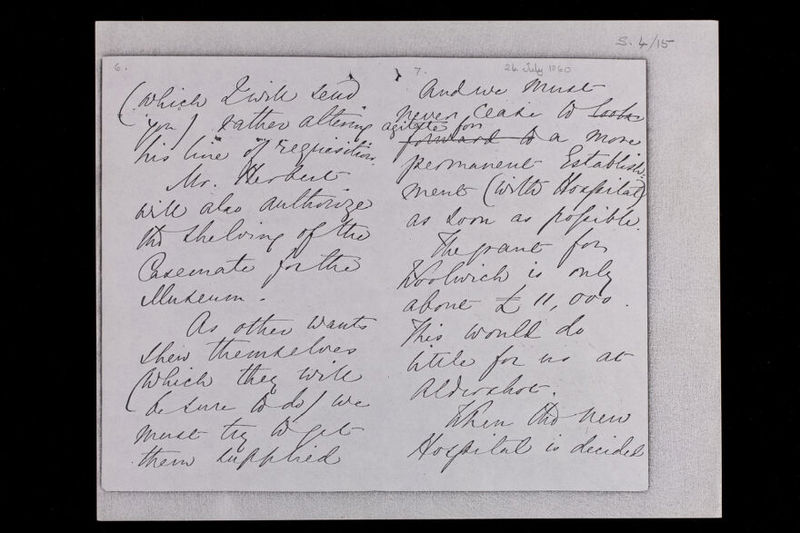 S. 4/15
6.
(which I will send
you) rather altering
his line of requisition.
Mr. Herbert
will also authorize
the shelving of the
Casemate for the
Museum.
As other wants
shew themselves
(which they will
be sure to do) we
must try to get
them supplied
7.
26 July 1860
And we must
never cease to look
agitate for
forward to a more
permanent Establish-
ment (with Hospital)
as soon as possible.
The grant for
Woolwich is only
about £11,000.
This would do
little for us at
Aldershot.
When the new
Hospital is decided